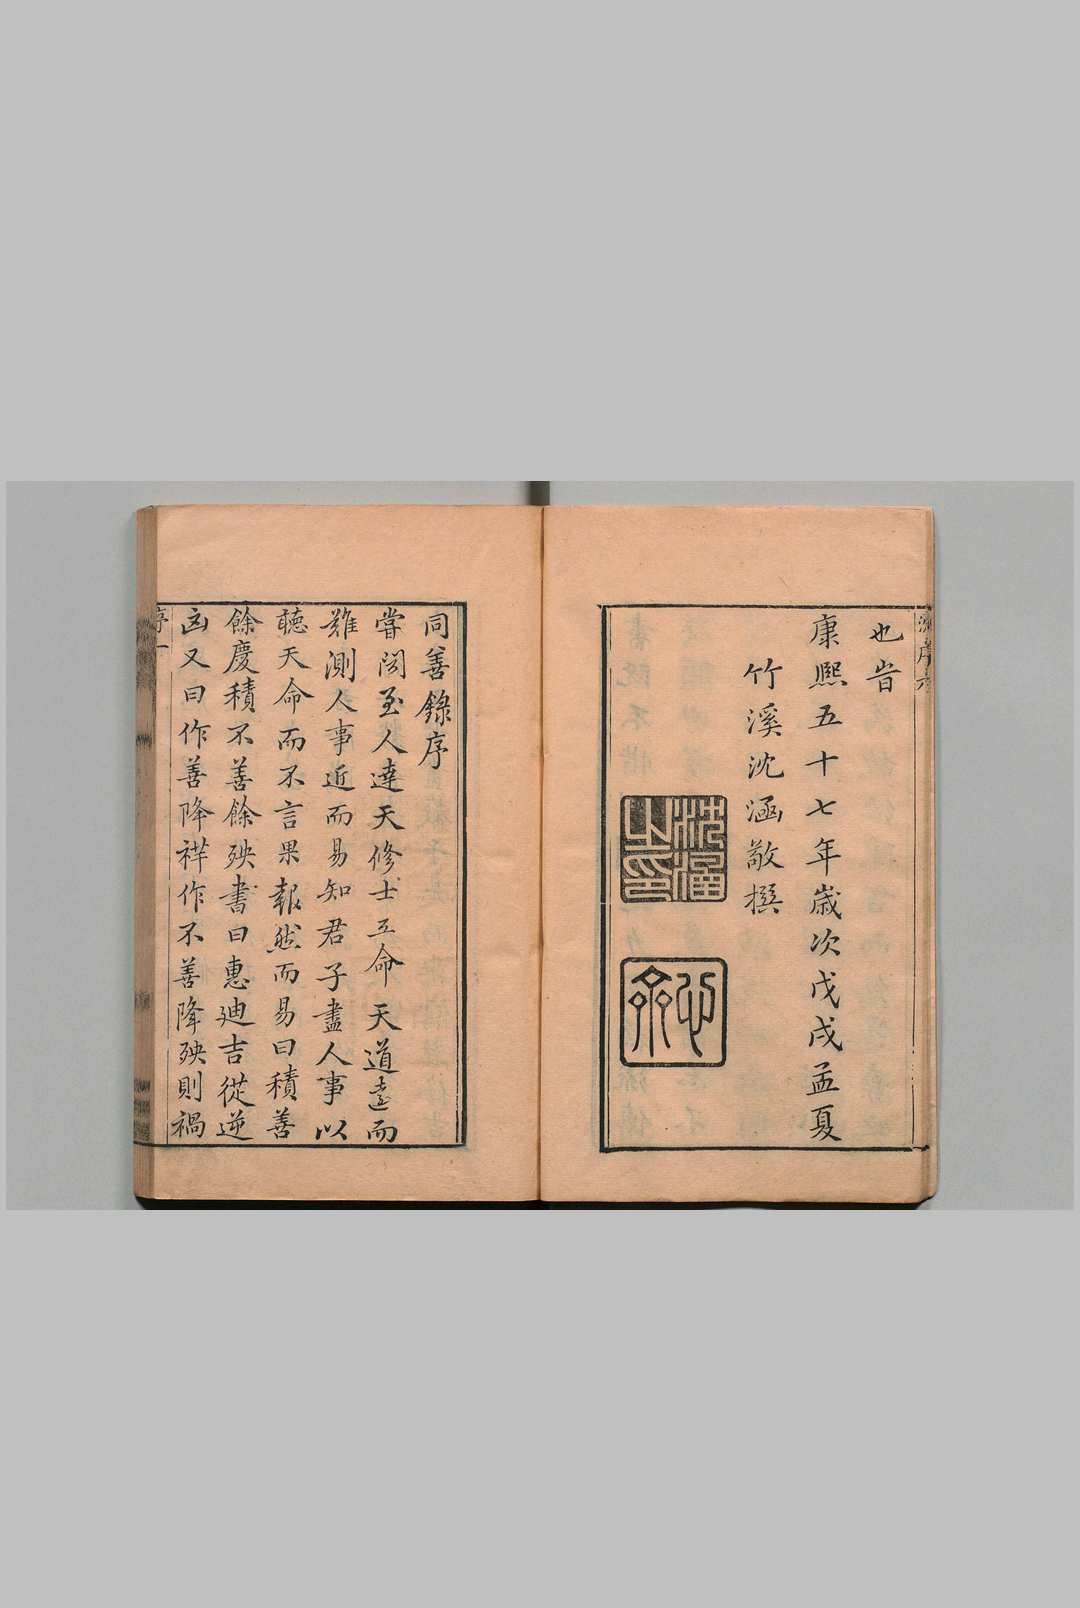 也旹
康熙五十七年歲次戊戌孟夏
竹溪沈涵敬撰
沈涵之印
心齋
同善錄序
嘗聞至人達天修士立命天道遠而
難測人事近而易知君子盡人事以
聽天命而不言果報然而易曰積善
餘慶積不善餘殃書曰惠迪吉從逆
凶又曰作善降祥作不善降殃則禍
序 一